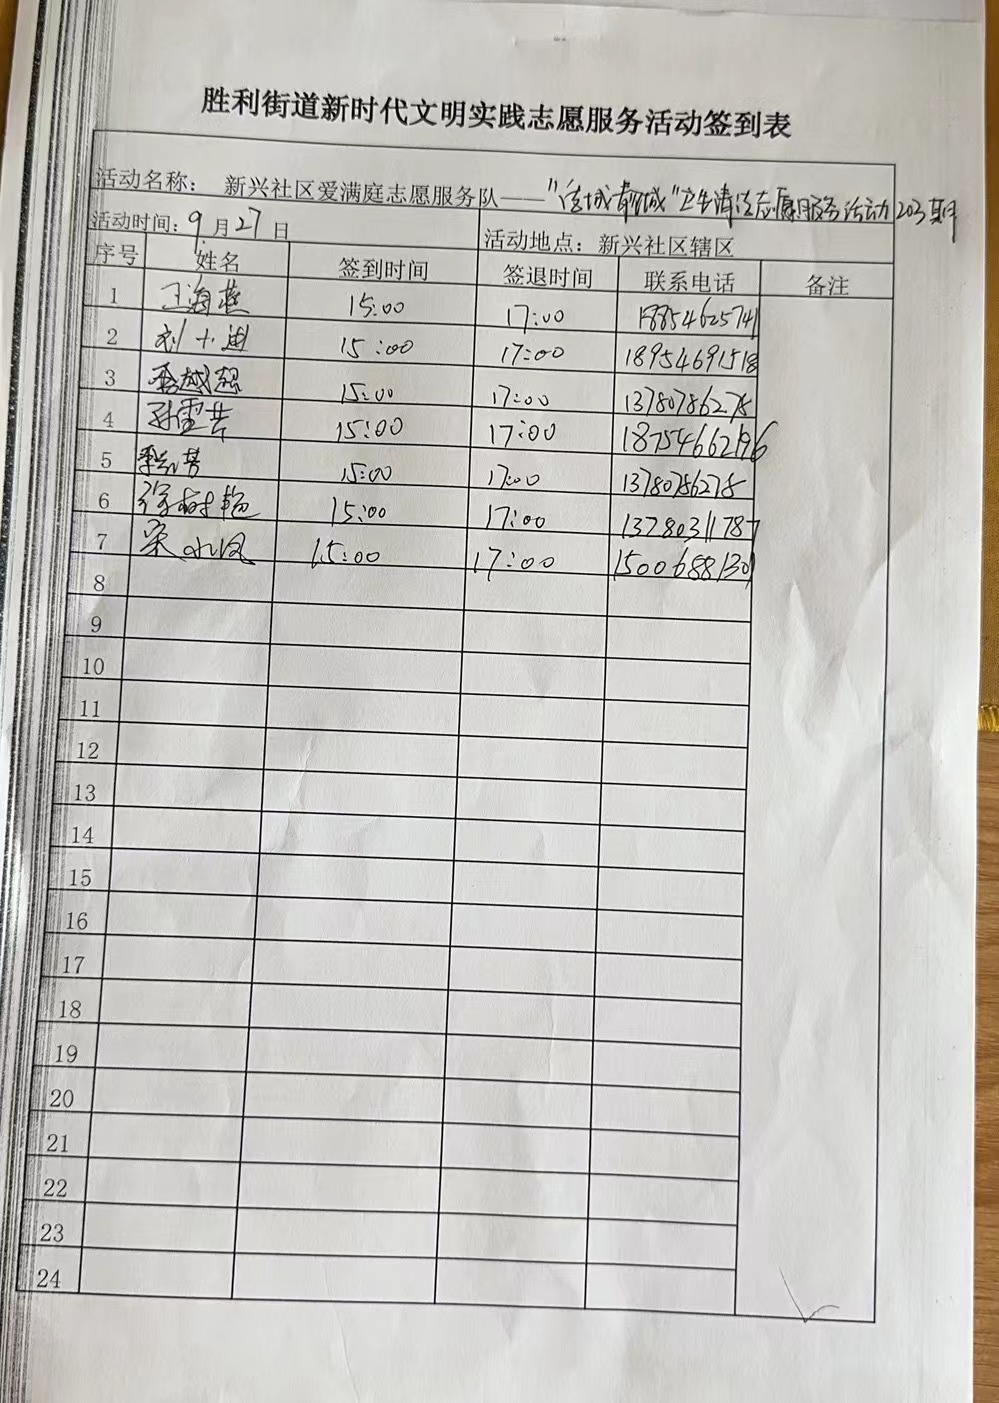 胜利街道新时代文明实践志愿服务活动签到表
活动名称： 新兴社区爱满庭志愿服务队——"城靓城"卫生清洁志愿服务活动203期
活动时间：9月27日 活动地点：新兴社区辖区
序号 姓名 签到时间 签退时间 联系电话 备注
1 王海燕 15:00 17:00 18854625741
2 刘小迪 15:00 17:00 18954691518
3 15:00 17:00 13780786278
4 孙雪芹 15:00 17:00 18754662196
5 15:00 17:00 13780786278
6 徐树艳 15:00 17:00 13780311787
7 宋小凤 15:00 17:00 15006881301
8
9
10
11
12
13
14
15
16
17
18
19
20
21
22
23
24